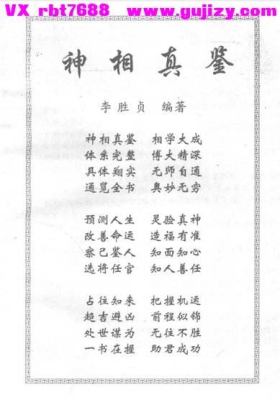 VX rbt7688 www.gujizy.com
神相真鉴
李胜贞 编著
神相真鉴 相学大成
体系完整 博大精深
具体翔实 无师自通
通览全书 奥妙无穷
预测人生 灵验真神
改善命运 造福有准
察己鉴人 知面知心
选将任官 知人善任
占往知来 把握机运
趋吉避凶 前程似锦
处世谋为 无往不胜
一书在握 助君成功